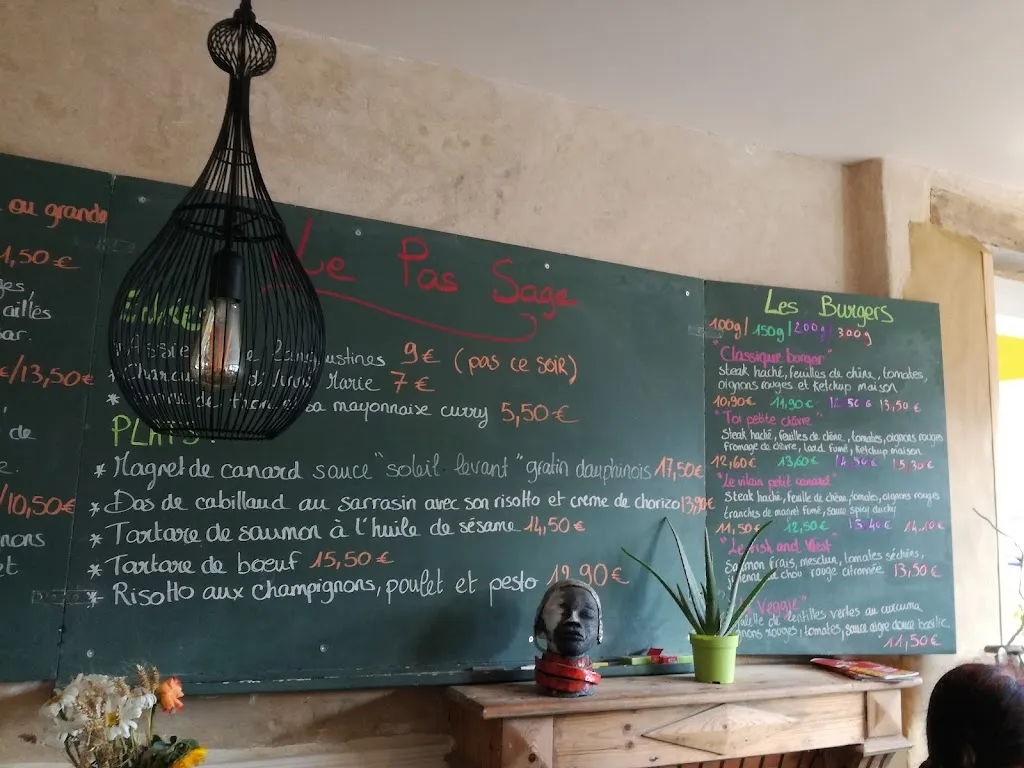 ou grande
1,50€
ges,
aillés
bar.
€/13,50€
de
e.
/10,50€
nons
et
Le Pas Sage
Entrées
ustines 9€ (pas ce soir)
Marie 7€
sa mayonnaise curry 5,50€
PLATS
* Magret de canard sauce "soleil levant" gratin dauphinois 17,50€
* Dos de cabillaud au sarrasin avec son risotto et creme de chorizo 13,90€
* Tartare de saumon à l'huile de sésame 14,50€
* Tartare de bœuf 15,50€
* Risotto aux champignons, poulet et pesto 12,90€
Les Burgers
100g/ 150g/ 200g/ 300g
"Classique borgor"
steak haché, feuilles de chêne, tomates,
oignons rouges et ketchup maison
10,90€ 11,90€ 12,50€ 13,50€
"Toi petite chèvre"
Steak haché, feuilles de chêne, tomates, oignons rouges
fromage de chèvre, lard fumé, ketchup maison
12,60€ 13,60€ 14,50€ 15,30€
"Le vilain petit canard"
Steak haché, feuille de chêne, tomates, oignons rouges
tranches de magret fumé, sauce spicy ducky
11,50€ 12,50€ 13,40€ 14,10€
"Le Fish and West"
Saumon frais, mesclun, tomates séchées,
de chou rouge citronnée 13,50€
Veggie"
de lentilles vertes au curcuma
oignons rouges, tomates, sauce aigre douce basilic
11,50€